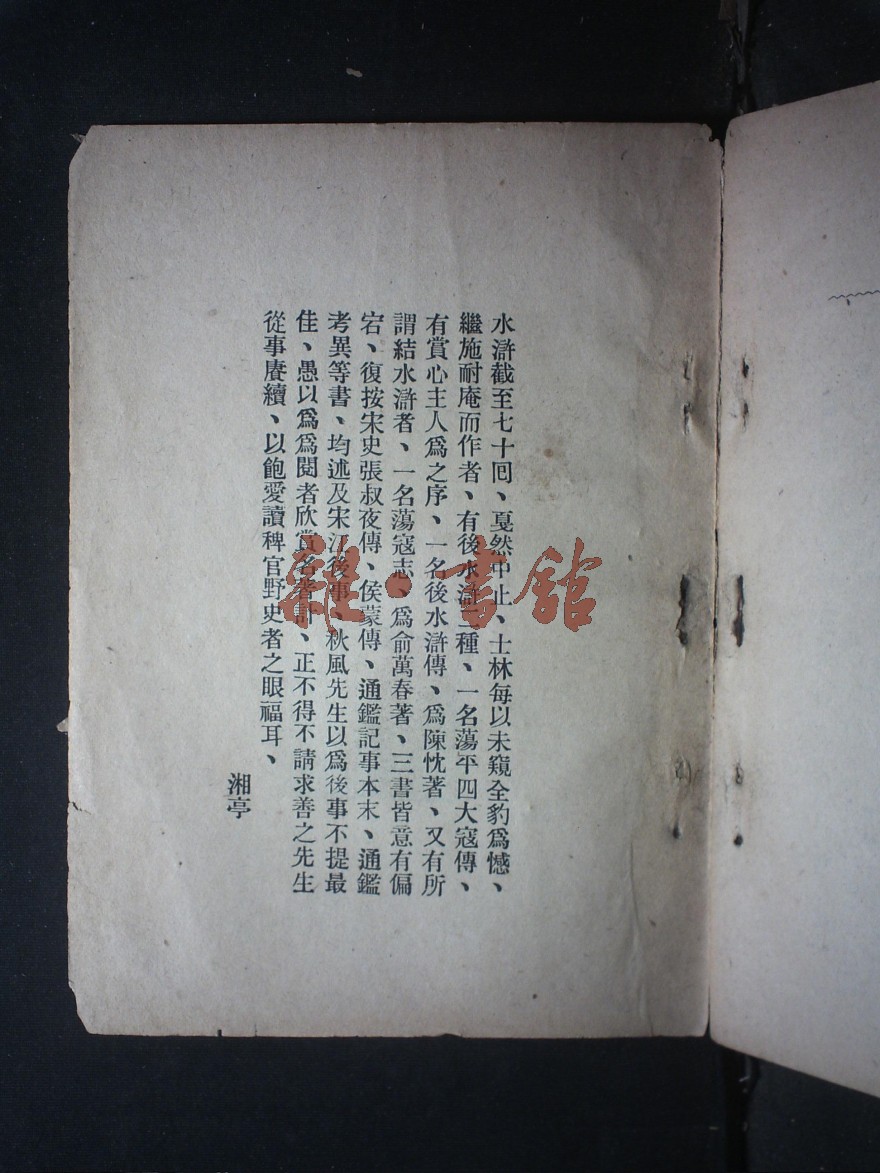 水滸截至七十回、戛然中止、士林每以未窺全豹爲憾、
繼施耐庵而作者、有後水滸二種、一名蕩平四大寇傳、
有賞心主人爲之序、一名後水滸傳、爲陳忱著、又有所
謂結水滸者、一名蕩寇志、爲俞萬春著、三書皆意有偏
宕、復按宋史張叔夜傳、侯蒙傳、通鑑記事本末、通鑑
考異等書、均述及宋江後事、秋風先生以爲後事不提最
佳、愚以爲爲閱者欣賞名著計、正不得不請求善之先生
從事賡續、以飽愛讀稗官野史者之眼福耳、
湘亭
雜·書館